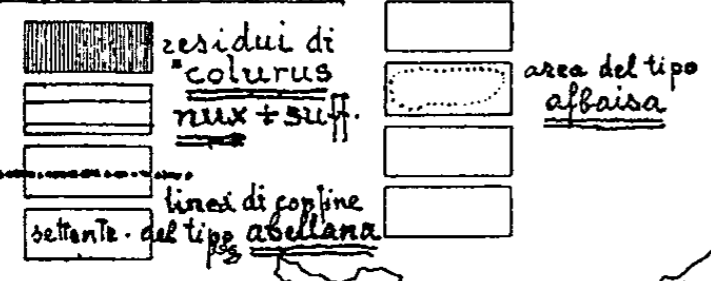 residui di
*colurus
nux + suff.
linea di confine
settente. del tipo abellana
area del tipo
afbaisa